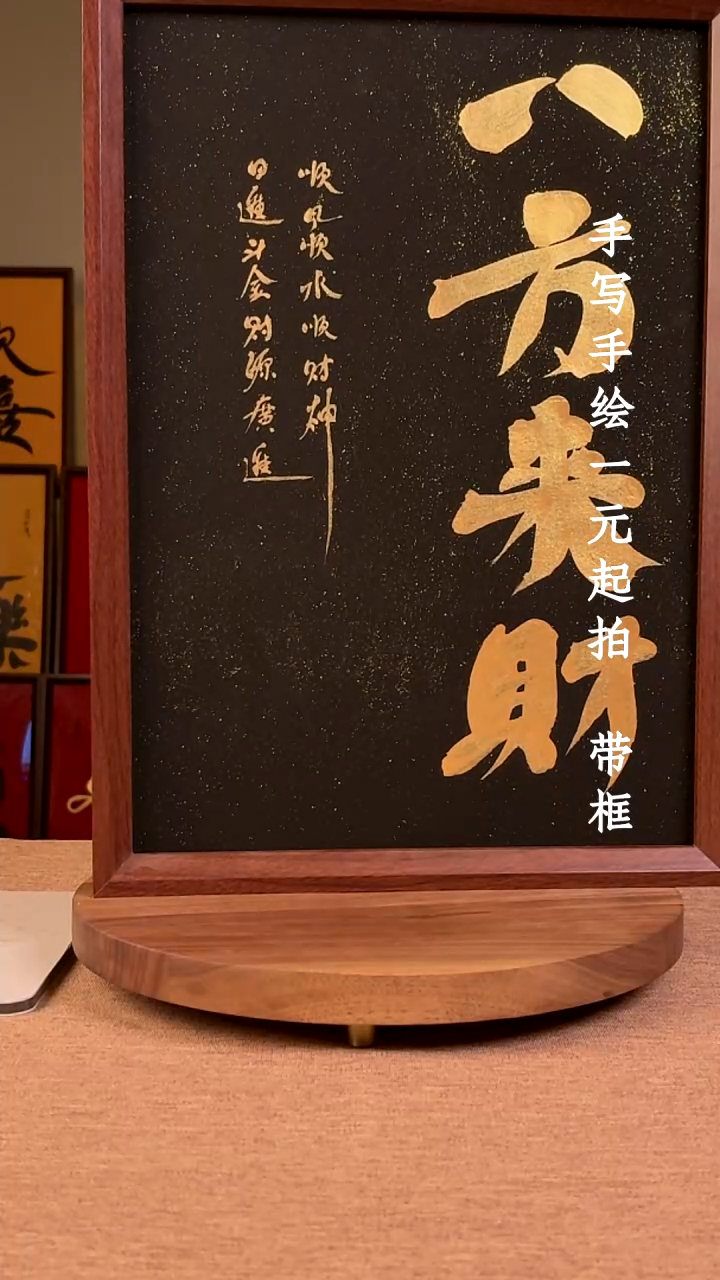 八方来财
顺风顺水顺财神
日进斗金财源广进
手写手绘一元起拍 带框